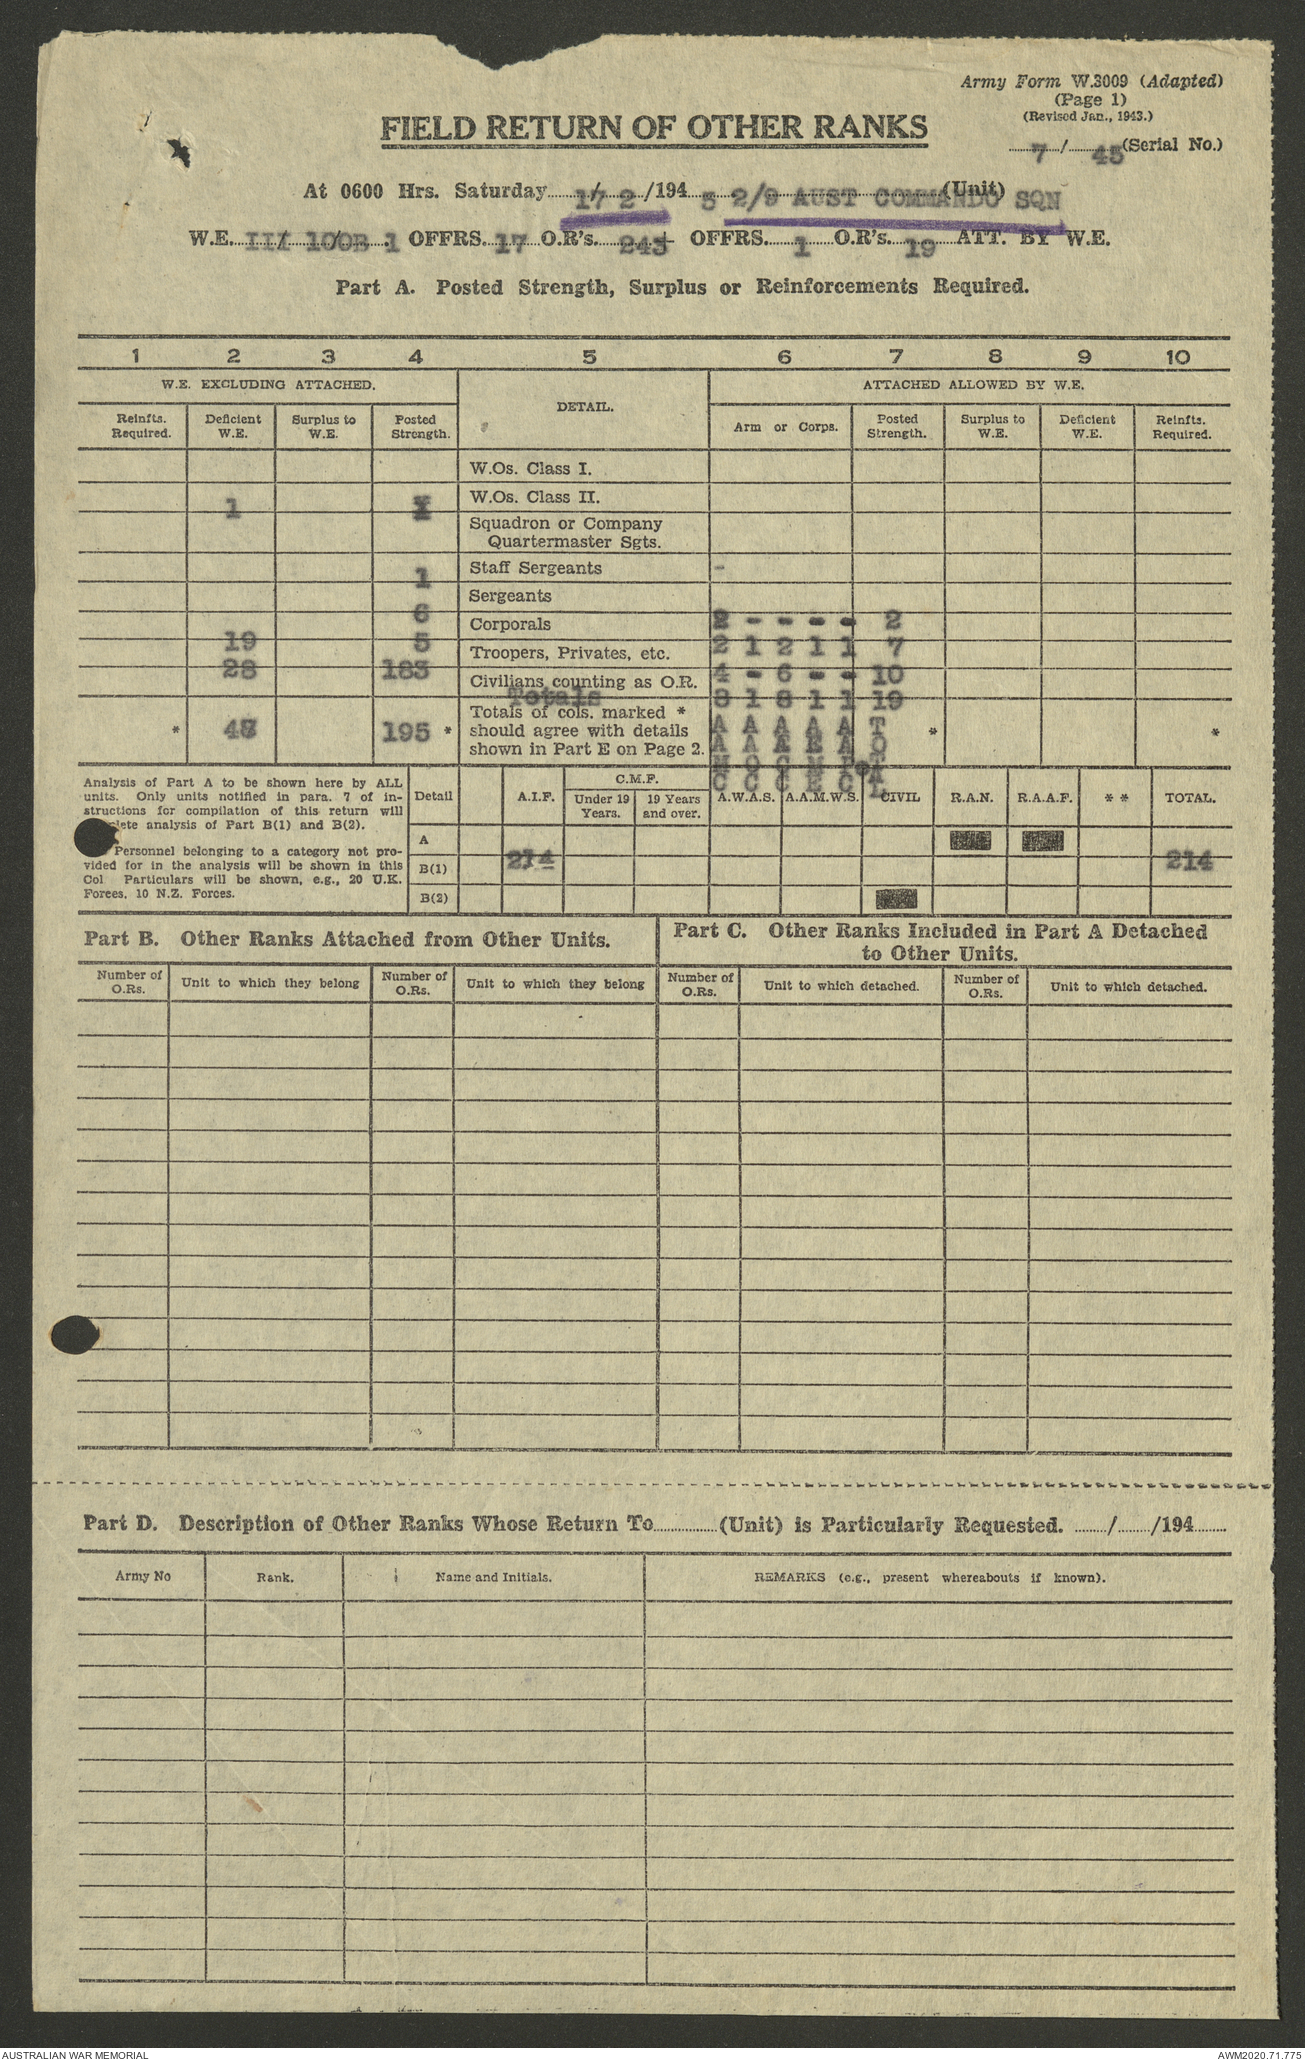 Army Form W.3009 (Adapted)
(Page 1)
(Revised Jan., 1943.)
FIELD RETURN OF OTHER RANKS
7/ 45 (Serial No.)
At 0600 Hrs. Saturday 17/ 2 /194 5 2/9 AUST COMMANDO SQN (Unit)
W.E. III/ 10/0B/1 OFFRS. 17 O.R's. 243 + OFFRS. 1 O.R's. 19 ATT. BY W.E.
Part A. Posted Strength, Surplus or Reinforcements Required.
1 2 3 4 5 6 7 8 9 10
W.E. EXCLUDING ATTACHED. DETAIL. ATTACHED ALLOWED BY W.E.
Reinfts. Required. Deficient W.E. Surplus to W.E. Posted Strength. Arm or Corps. Posted Strength. Surplus to W.E. Deficient W.E. Reinfts. Required.
W.Os. Class I.
1 W.Os. Class II.
Squadron or Company
Quartermaster Sgts.
1 Staff Sergeants -
6 Sergeants
19 5 Corporals 2 - - - - 2
28 183 Troopers, Privates, etc. 2 1 2 1 1 7
Civilians counting as O.R. 4 - 6 - - 10
Totals 8 1 8 1 1 19
* 195 * Totals of cols. marked * A A A A A T * *
should agree with details A A E E A O
shown in Part E on Page 2. T
C C C E C A
L
Analysis of Part A to be shown here by ALL
units. Only units notified in para. 7 of in-
structions for compilation of this return will
analysis of Part B(1) and B(2).
Personnel belonging to a category not pro-
vided for in the analysis will be shown in this
Col Particulars will be shown, e.g., 20 U.K.
Forces, 10 N.Z. Forces.
Detail A.I.F. C.M.F. Under 19 Years. 19 Years and over. A.W.A.S. A.A.M.W.S. CIVIL R.A.N. R.A.A.F. * * TOTAL.
A
214 214
B(1)
B(2)
Part B. Other Ranks Attached from Other Units.
Part C. Other Ranks Included in Part A Detached
to Other Units.
Number of O.Rs. Unit to which they belong Number of O.Rs. Unit to which they belong Number of O.Rs. Unit to which detached. Number of O.Rs. Unit to which detached.
Part D. Description of Other Ranks Whose Return To............(Unit) is Particularly Requested. ......./......./194.......
Army No Rank. Name and Initials. REMARKS (e.g., present whereabouts if known).
AUSTRALIAN WAR MEMORIAL AWM2020.71.775